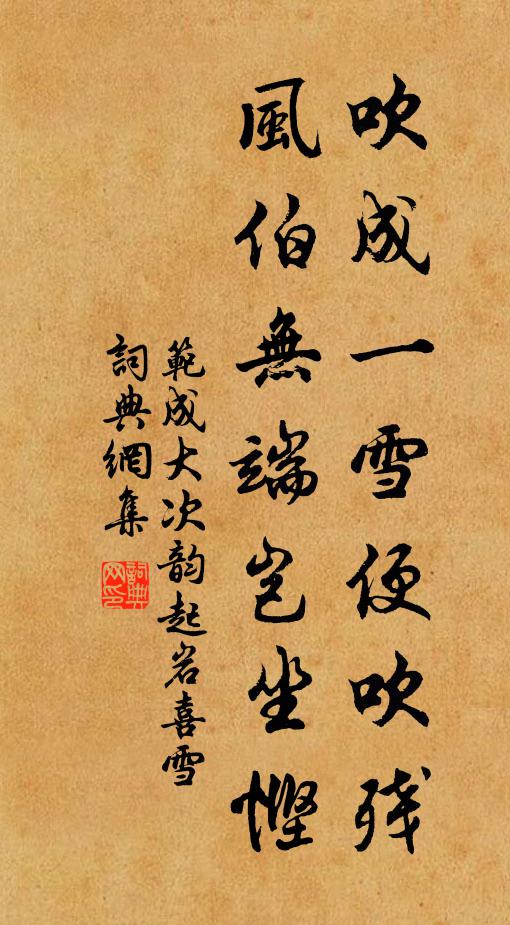 吹成一雪便吹残
風伯無端豈坐慳
範成大次韵起岩喜雪
詞典網集
詞典
网印